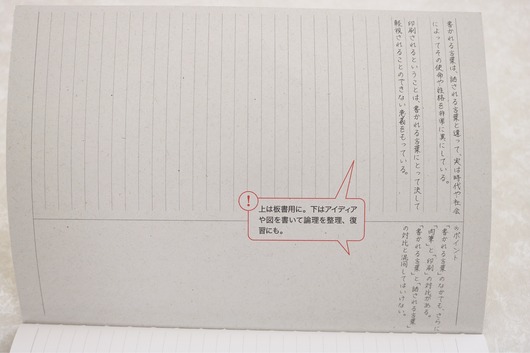 書かれる言葉は、話される言葉と違って、実は時代や社会
によってその使命や性格を非常に異にしている。
印刷されるということは、書かれる言葉にとって決して
軽視されることのできない意義をもっている。
!
上は板書用に。下はアイディア
や図を書いて論理を整理、復
習にも。
ポイント
「書かれる言葉」のなかでも、さらに
「肉筆」と「印刷」の対比がある。
「書かれる言葉」と「話される言葉」
の対比と混同してはいけない。